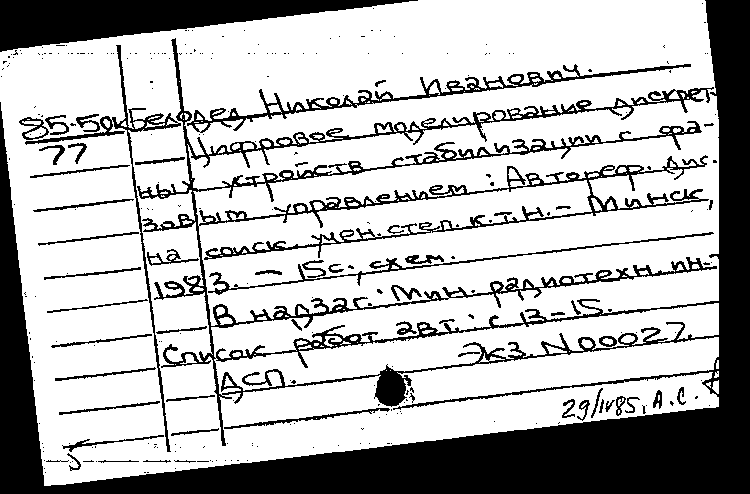 85-50к Белодед, Николай Иванович.
77 Цифровое моделирование дискрет-
ных устройств стабилизации с фа-
зовым управлением : Автореф. дис.
на соиск. учен. степ. к.т.н. - Минск,
1983. - 15с., схем.
В надзаг.: Мин. радиотехн. ин-т
Список работ авт.: с 13-15.
ДСП. Экз. N00027.
29/IV85, А.С.
5